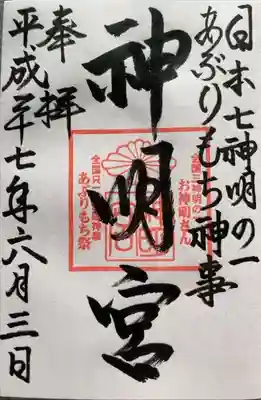 日本七神明の一
あぶりもち神事
神明宮
奉拝
平成二十七年六月三日
全国三神明の一
お神明さん
あぶりもち祭